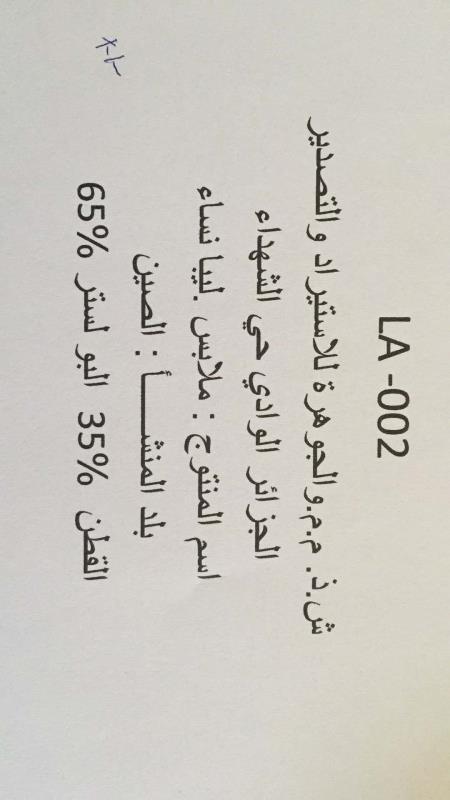 LA -002
ش.ذ. م.م.والجوهرة للاستيراد والتصدير
الجزائر الوادي حي الشهداء
اسم المنتوج : ملابس .ليبا نساء
بلد المنشـــــأ : الصين
القطن 35% البو لستر 65%